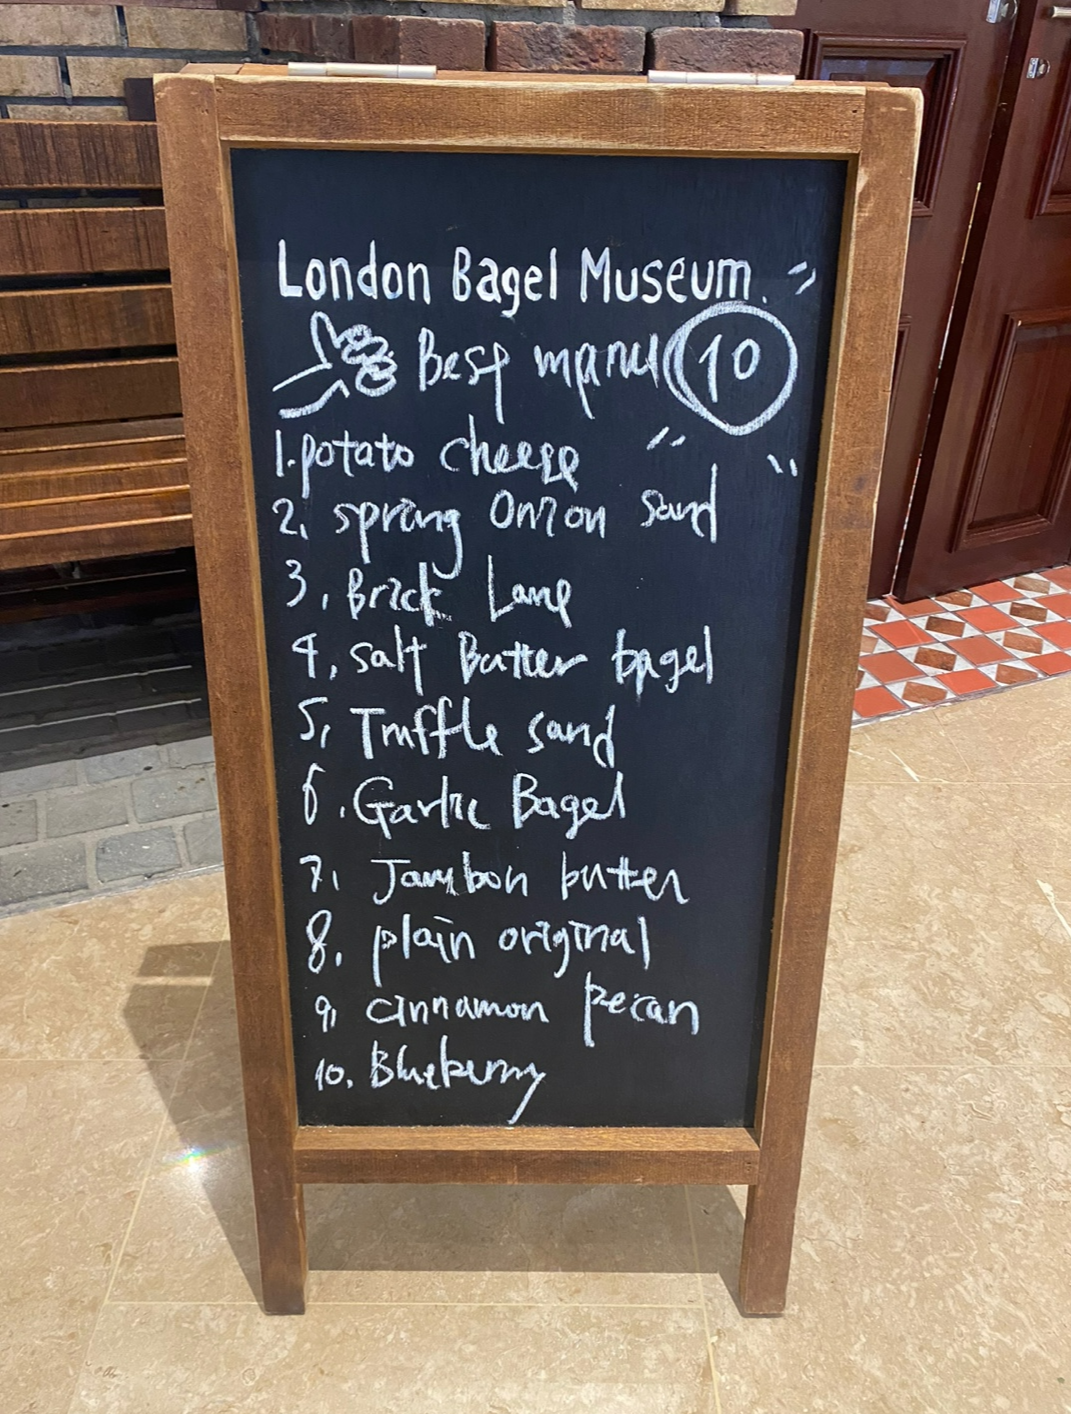 London Bagel Museum.
Best menu 10
1. potato cheese
2. spring Onion sand
3. Brick Lane
4. salt Butter bagel
5. Truffle sand
6. Garlic Bagel
7. Jambon butter
8. plain original
9. cinnamon pecan
10. Blueberry